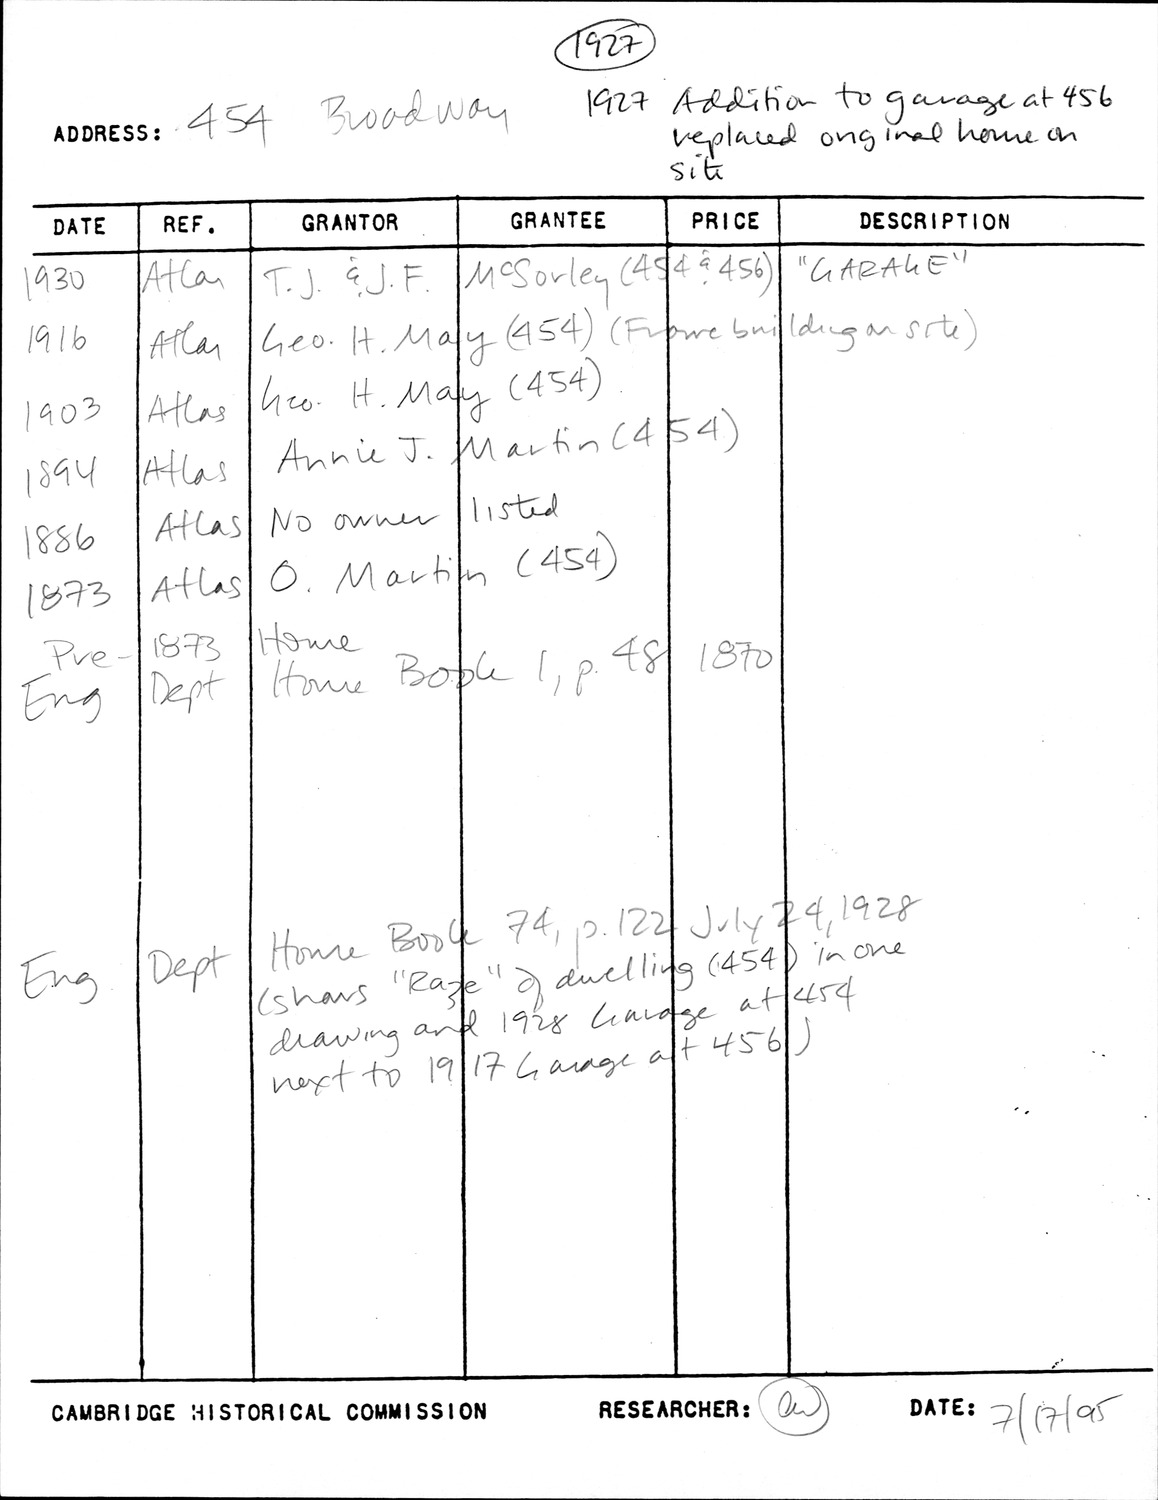 1927
1927 Addition to garage at 456
ADDRESS: 454 Broadway
replaced original home on
site
DATE REF. GRANTOR GRANTEE PRICE DESCRIPTION
1930 Atlas T.J. & J.F. McSorley (454 & 456) "GARAGE"
1916 Atlas Geo. H. May (454) (Frame building on site)
1903 Atlas Geo. H. May (454)
1894 Atlas Annie J. Martin (454)
1886 Atlas No owner listed
1873 Atlas O. Martin (454)
Pre- 1873 Home
Eng Dept House Book 1, p. 48 1870
Eng Dept House Book 74, p.122 July 24, 1928
(shows "Raze" of dwelling (454) in one
drawing and 1928 Garage at 454
next to 1917 Garage at 456)
CAMBRIDGE HISTORICAL COMMISSION RESEARCHER: DATE: 7/17/95